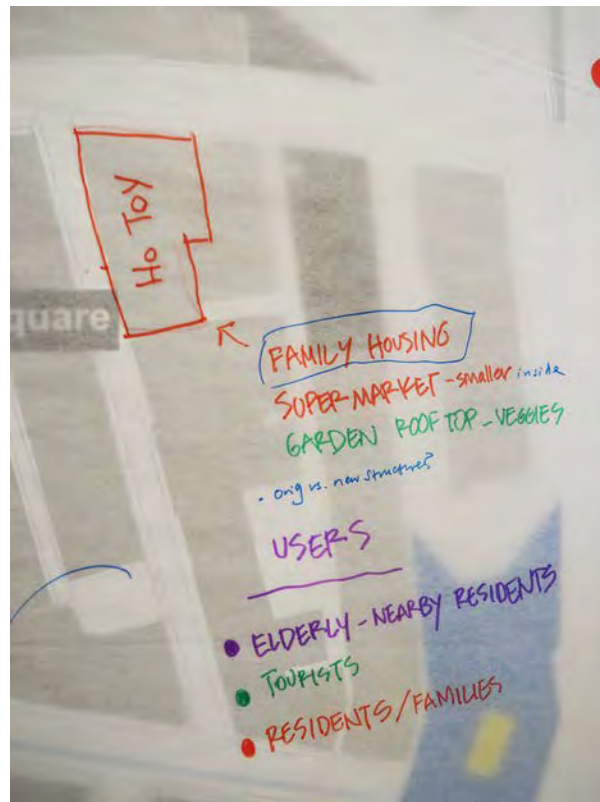 HO TOY
quare
FAMILY HOUSING
SUPERMARKET - smaller inside
GARDEN ROOFTOP - VEGGIES
• orig vs. new structures?
USERS
• ELDERLY - NEARBY RESIDENTS
• TOURISTS
• RESIDENTS/FAMILIES